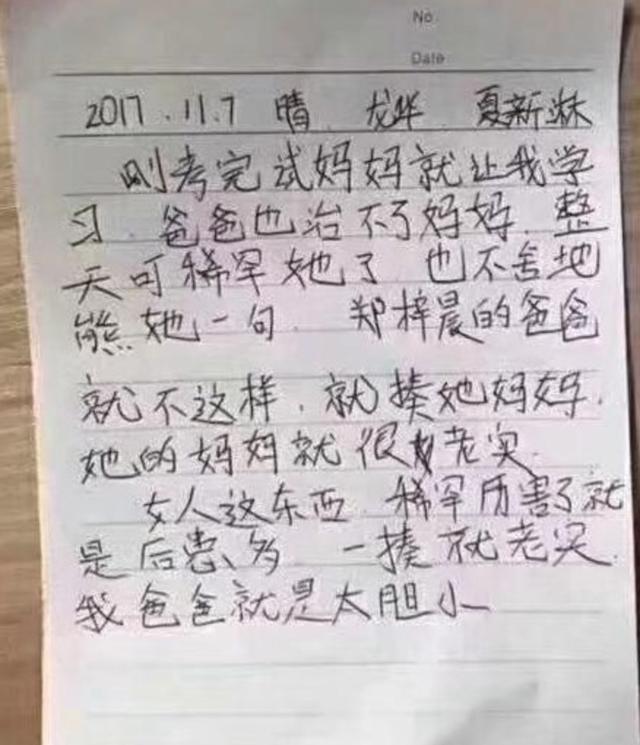 No.
Date
2017.11.7 晴 龙华 夏新淋
刚考完试妈妈就让我学
习.爸爸也治不了妈妈.整
天可稀罕她了 也不舍地
熊她一句. 郑梓晨的爸爸
就不这样.就揍她妈妈.
她的妈妈就很老实.
女人这东西 稀罕历害了就
是后患多 一揍就老实.
我爸爸就是太胆小